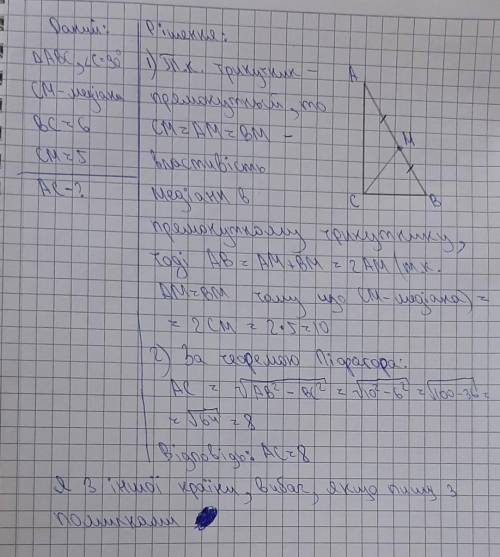 Даний:
ΔABC, ∠C=90°
CM-медіана
BC=6
CM=5
AC-?
Рішення:
1) Т.к. трикутник -
прямокутный, то
CM=AM=BM -
властивість
медіани в
прямокутному трикутнику,
тоді AB=AM+BM=2AM (т.к.
AM=BM тому що CM-медіана)=
=2CM=2•5=10
2) За теоремою Піфагора:
AC = √AB²-BC² = √10²-6² = √100-36 =
=√64=8
Відповідь: AC=8
Я з іншої країни, вибач, якщо пишу з
помилками
A
M
C
B